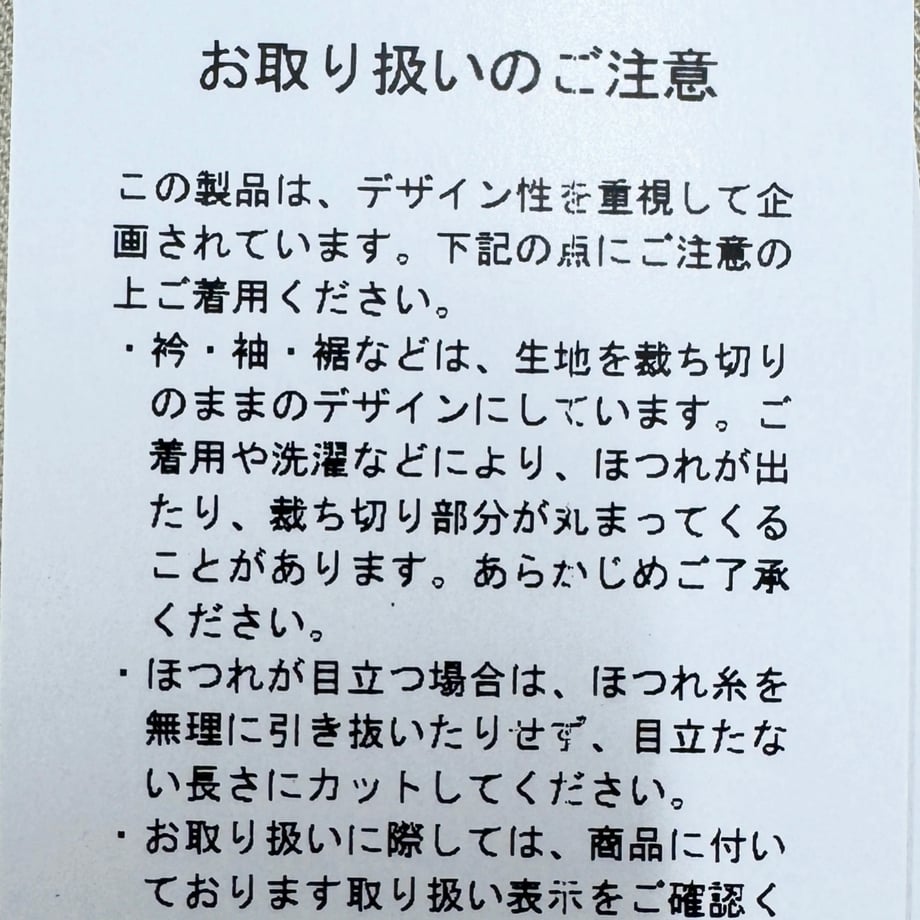 お取り扱いのご注意
この製品は、デザイン性を重視して企
画されています。下記の点にご注意の
上ご着用ください。
・衿・袖・裾などは、生地を裁ち切り
のままのデザインにしています。ご
着用や洗濯などにより、ほつれが出
たり、裁ち切り部分が丸まってくる
ことがあります。あらかじめご了承
ください。
・ほつれが目立つ場合は、ほつれ糸を
無理に引き抜いたりせず、目立たな
い長さにカットしてください。
・お取り扱いに際しては、商品に付い
ております取り扱い表示をご確認く